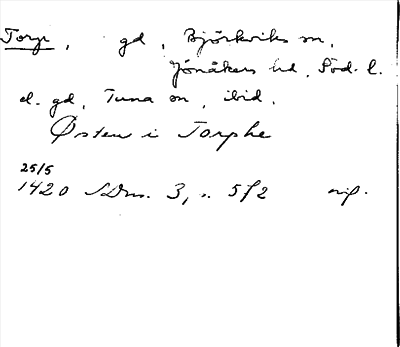 Torp, gd, Björkviks sn,
Jönåkers hd, Söd. l.
el. gd, Tuna sn, ibid.
Østen i Torphe
25/5
1420 SDns. 3, s. 512